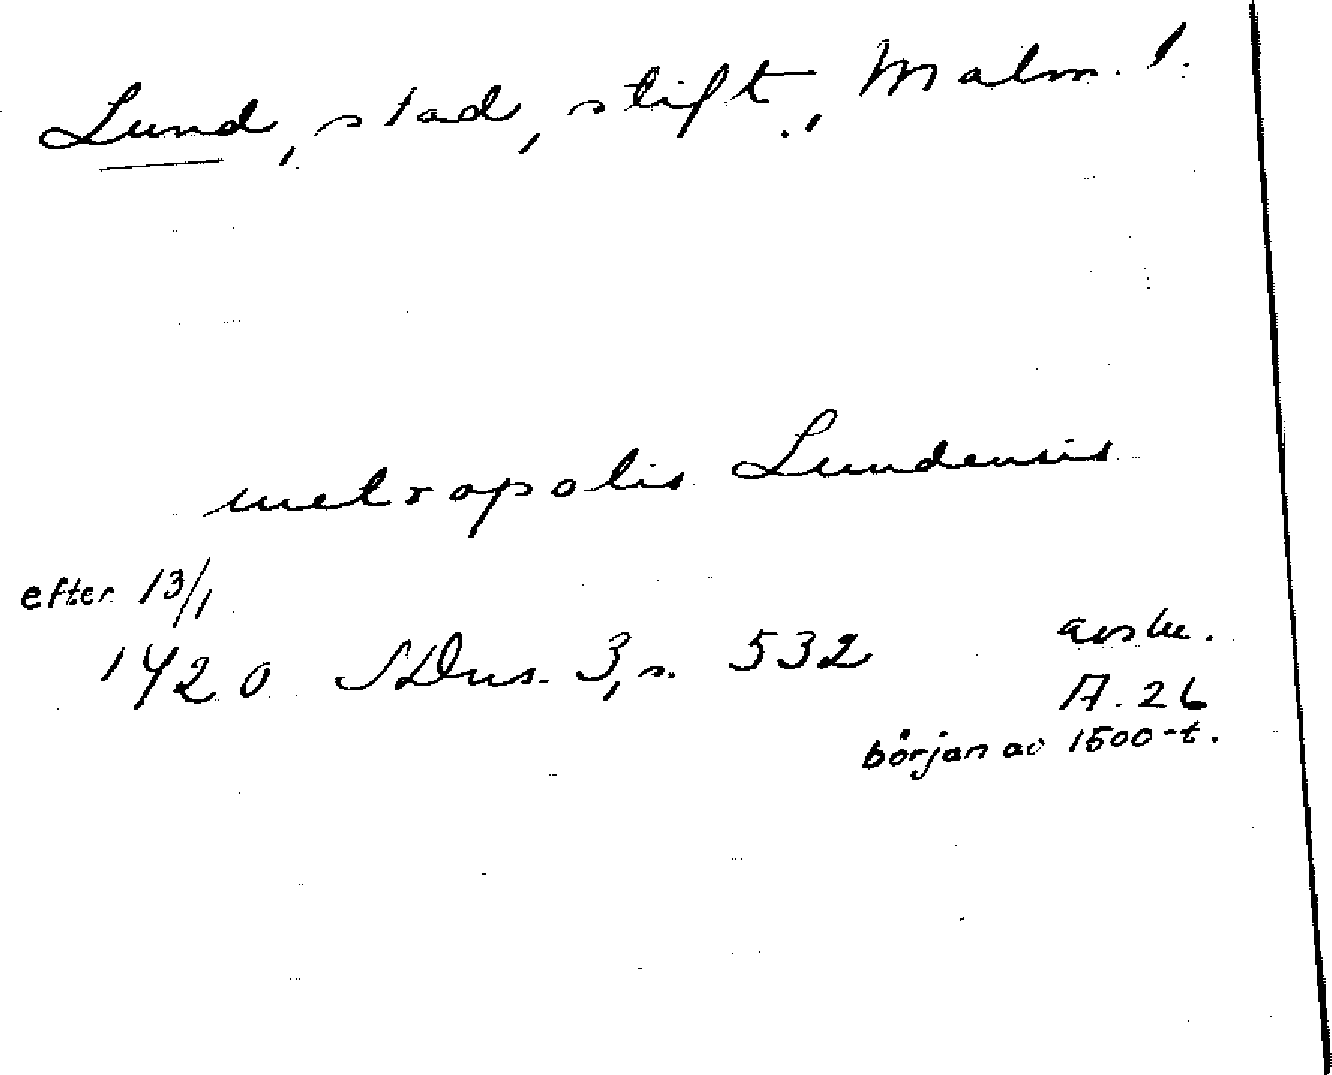 Lund, stad, stift., Malm. l.
metropolis Lundensis
efter 13/1
1420 SDns. 3, s. 532 avskr.
A. 26
början av 1500-t.